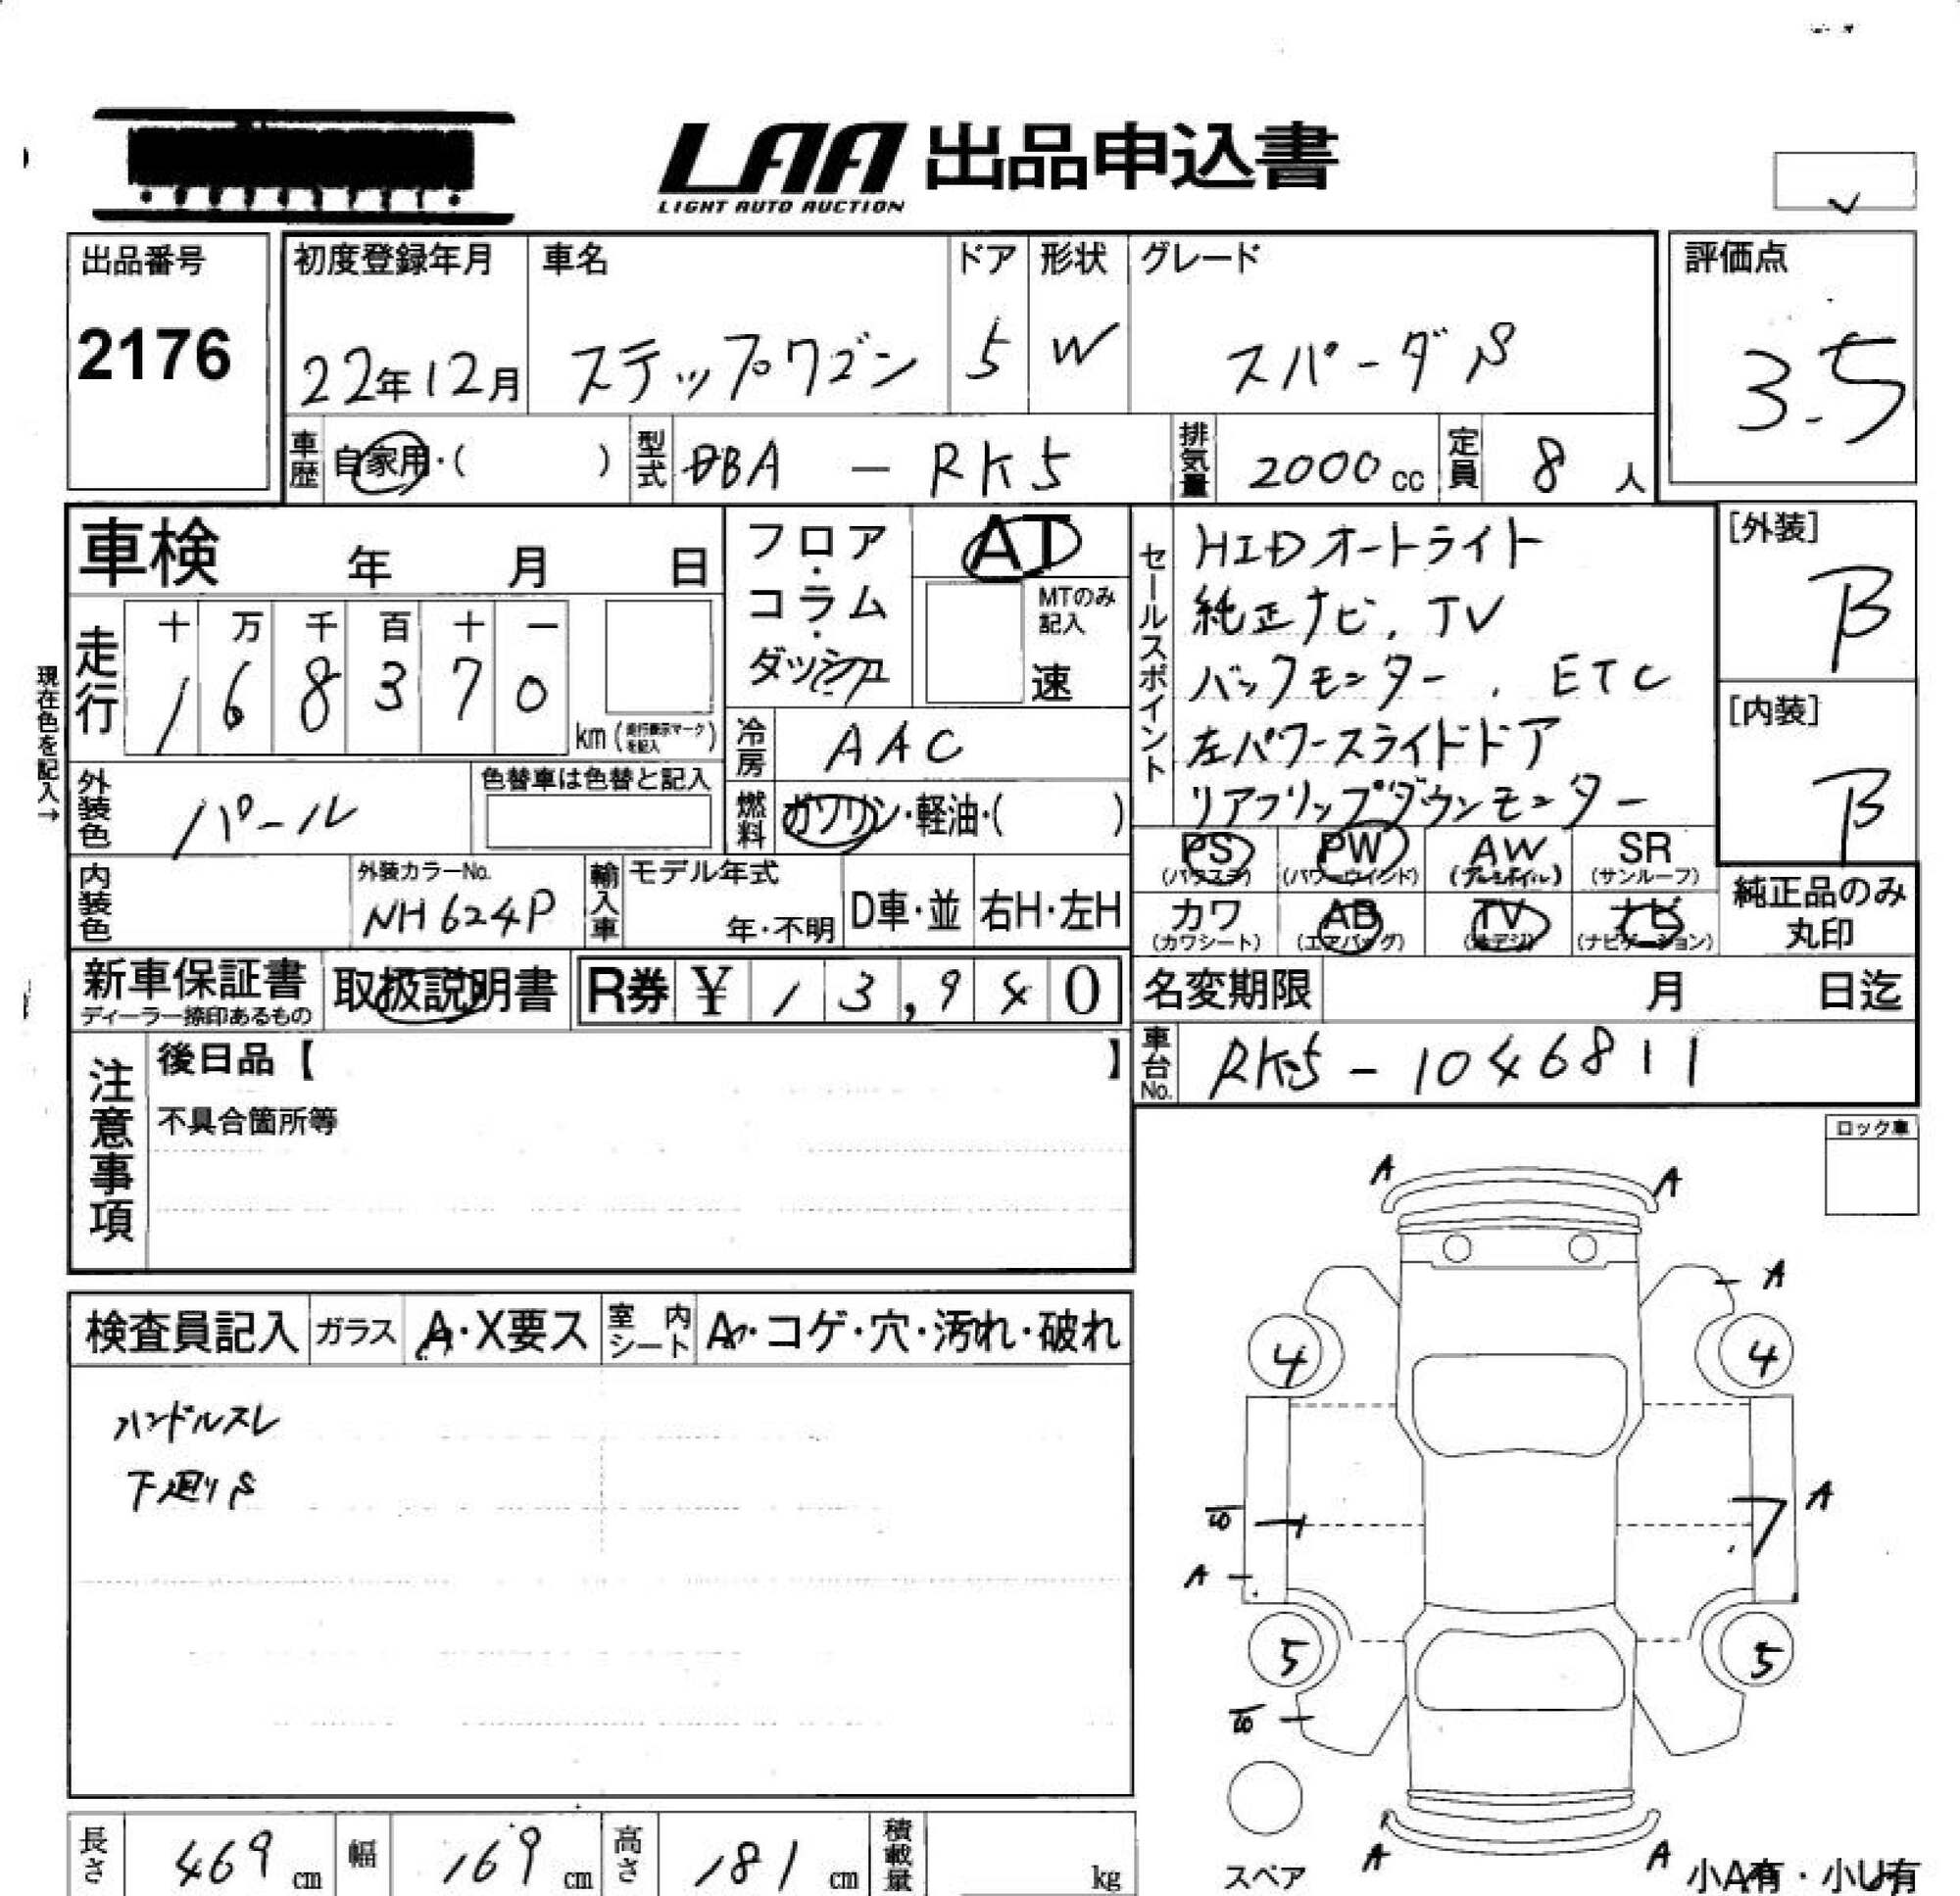 LAA 出品申込書
LIGHT AUTO AUCTION
出品番号
2176
初度登録年月
22年12月
車名
ステップワゴン
ドア
5
形状
W
グレード
スパーダS
評価点
3.5
車歴 自家用・( )
型式 DBA - RK5
排気量 2000cc
定員 8人
車検 年 月 日
フロア・コラム・ダッシュ
AT
MTのみ記入
速
セールスポイント
HIDオートライト
純正ナビ、TV
バックモニター、ETC
左パワースライドドア
リアフリップダウンモニター
[外装]
B
[内装]
B
現在色を記入→
走行
十 万 千 百 十 一
1 6 8 3 7 0
km(走行表示マークを記入)
冷房 AAC
外装色 パール
色替車は色替と記入
燃料 ガソリン・軽油・( )
PS (パワステ)
PW (パワーウィンド)
AW (アルミホイル)
SR (サンルーフ)
カワ (カワシート)
AB (エアバッグ)
TV (地デジ)
ナビ (ナビゲーション)
純正品のみ丸印
内装色
外装カラーNo.
NH624P
輸入車
モデル年式
年・不明
D車・並
右H・左H
新車保証書
ディーラー捺印あるもの
取扱説明書
R券 ¥ 13,940
名変期限 月 日迄
車台No. RK5-1046811
注意事項
後日品【 】
不具合箇所等
ロック車
検査員記入
ガラス A・X要ス
室内シート A・コゲ・穴・汚れ・破れ
ハンドルスレ
下廻りS
A A
A
4 4
A
A
5 5
A A
スペア
小A有・小U有
長さ 469cm
幅 169cm
高さ 181cm
積載量 kg